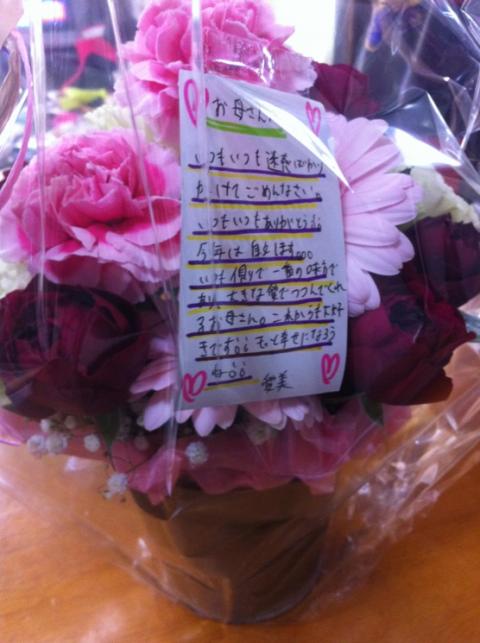 お母さんへ
いつもいつも迷惑ばかり
かけてごめんなさい。
いつもいつもありがとう。
今年は自立します。。。
いつも側りで一番の味方で
あり、大きな愛でつつんでくれ
るお母さん。これからも大好
きです。もっと幸せになろう
ね
愛美